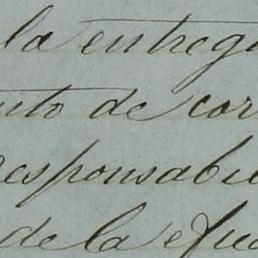 la entreg
nto de cor
responsabil
de la efec